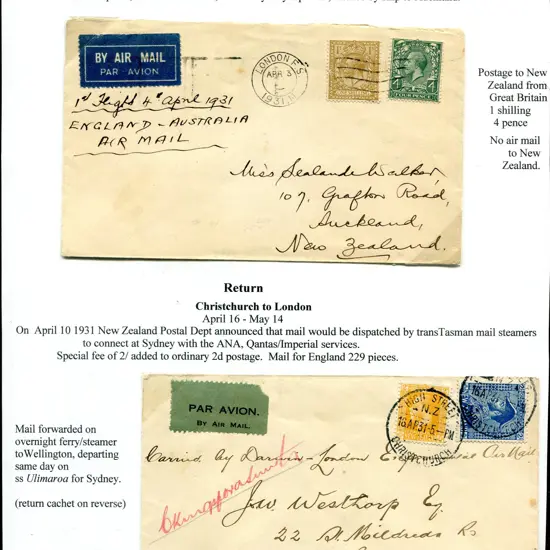 BY AIR MAIL
PAR AVION
LONDON F.S.
APR 3
1931
FOUR PENCE
1st Flight 4th April 1931
ENGLAND - AUSTRALIA
AIR MAIL
Miss Sealande Walker,
107, Grafton Road,
Auckland,
New Zealand.
Postage to New
Zealand from
Great Britain
1 shilling
4 pence
No air mail
to New
Zealand.
Return
Christchurch to London
April 16 - May 14
On April 10 1931 New Zealand Postal Dept announced that mail would be dispatched by transTasman mail steamers
to connect at Sydney with the ANA, Qantas/Imperial services.
Special fee of 2/ added to ordinary 2d postage. Mail for England 229 pieces.
Mail forwarded on
overnight ferry/steamer
toWellington, departing
same day on
ss Ulimaroa for Sydney.
(return cachet on reverse)
PAR AVION.
BY AIR MAIL.
HIGH STREET
N.Z.
16AP31.5-PM
CHRISTCHURCH
Carried by Darwin-London Air Mail
Jas Westhorp Esq
22 St. Mildreds Rd